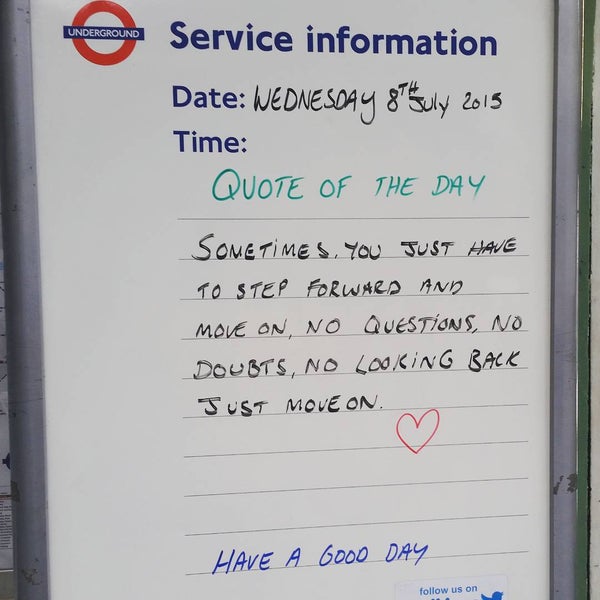 UNDERGROUND
Service information
Date: WEDNESDAY 8TH July 2015
Time:
QUOTE OF THE DAY
SOMETIMES, YOU JUST HAVE
TO STEP FORWARD AND
MOVE ON, NO QUESTIONS, NO
DOUBTS, NO LOOKING BACK
JUST MOVE ON.
HAVE A GOOD DAY
follow us on